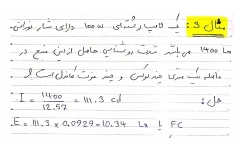 مثال 3: یک لامپ رشته‌ای 100w دارای شار نورانی
1400 لومن می‌باشد شدت روشنایی حاصل از این منبع در
فاصله یک متری چند لوکس و چند فوت کاندل است؟
حل:
I = 1400 / 12.57 = 111.3 cd
E = 111.3 x 0.0929 = 10.34 Lx یا FC